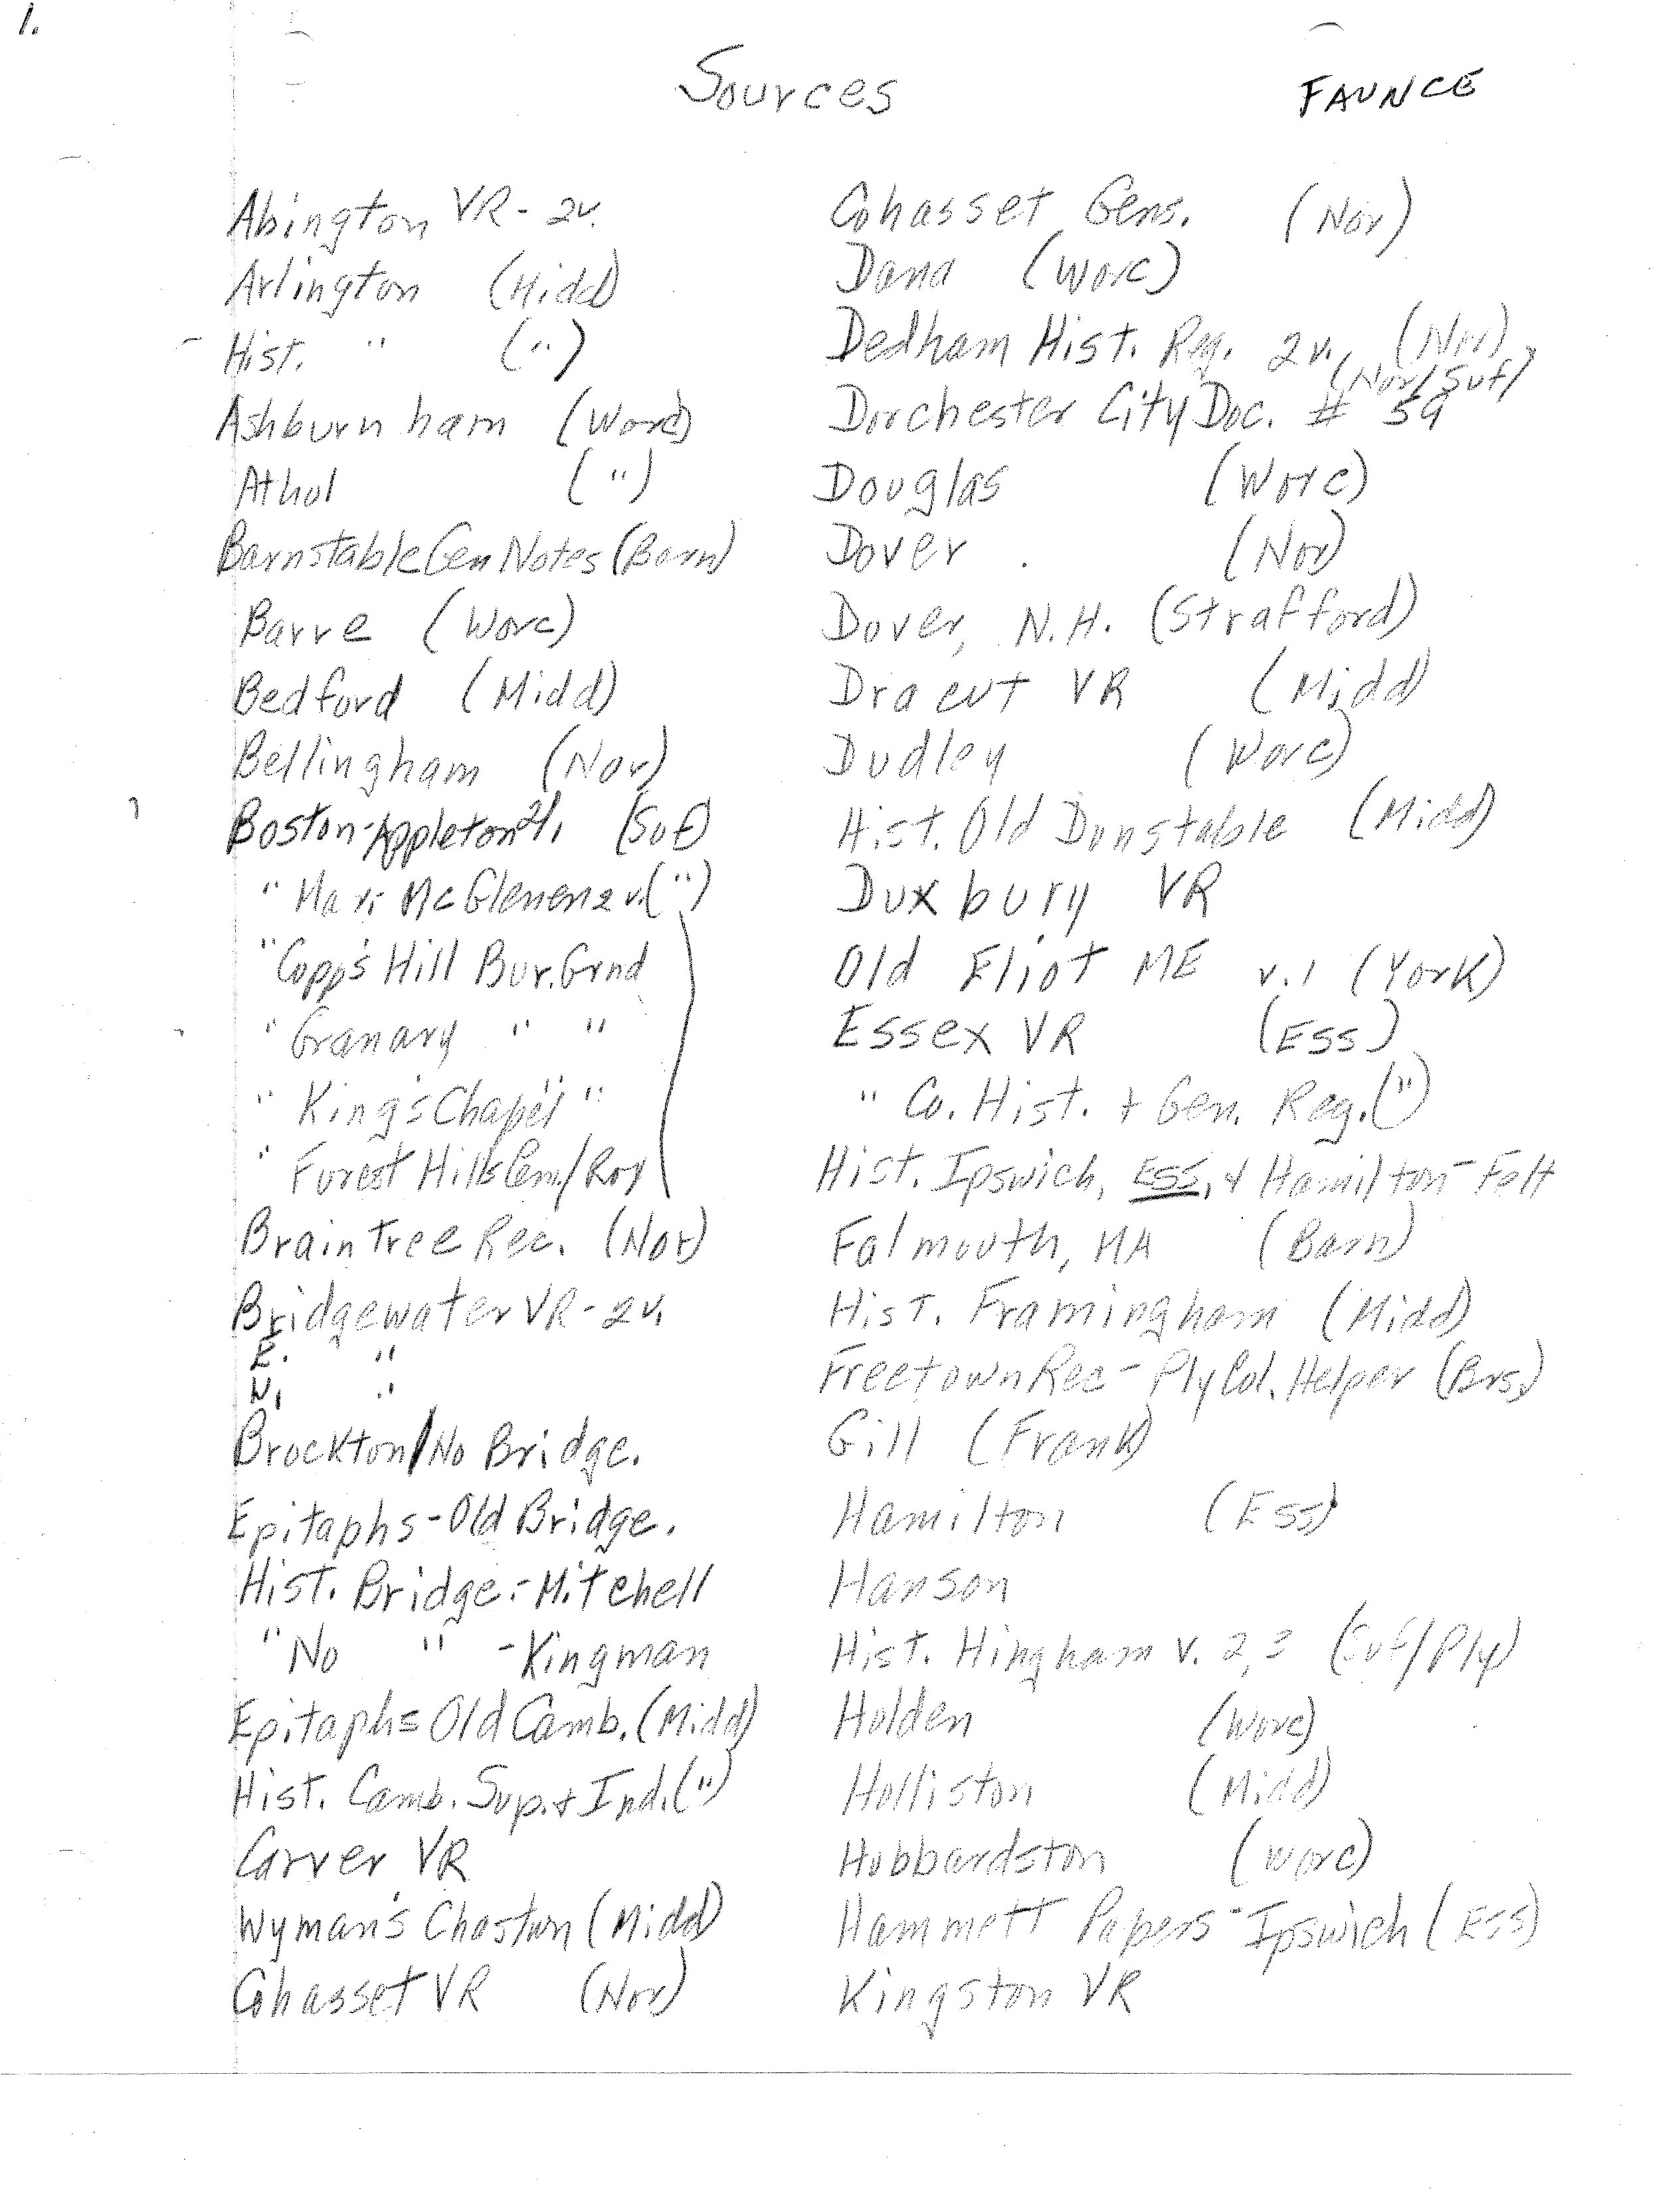 1.
Sources
FAUNCE
Abington VR - 2v.
Arlington (Midd)
Hist. " (")
Ashburnham (Worc)
Athol (")
Barnstable Gen Notes (Barn)
Barre (Worc)
Bedford (Midd)
Bellingham (Nor)
Boston-Appleton 2v. (Suf)
" Mar. McGlenen 2v. (")
" Copp's Hill Bur. Grnd
" Granary " "
" King's Chapel " "
" Forest Hills Cem/Rox
Braintree Rec. (Nor)
Bridgewater VR - 2v.
E. "
N. "
Brockton/No Bridge.
Epitaphs - Old Bridge.
Hist. Bridge. - Mitchell
" No " - Kingman
Epitaphs Old Camb. (Midd)
Hist. Camb. Sup. + Ind. (")
Carver VR
Wyman's Chastwn (Midd)
Cohasset VR (Nor)
Cohasset Gens. (Nor)
Dana (Worc)
Dedham Hist. Reg. 2v. (Nor)
(Nor/Suf)
Dorchester City Doc. # 59
Douglas (Worc)
Dover (Nor)
Dover, N.H. (Strafford)
Dracut VR (Midd)
Dudley (Worc)
Hist. Old Dunstable (Midd)
Duxbury VR
Old Eliot ME v.1 (York)
Essex VR (Ess)
" Co. Hist. + Gen. Reg. (")
Hist. Ipswich, Ess, + Hamilton - Felt
Falmouth, MA (Barn)
Hist. Framingham (Midd)
Freetown Rec - Ply Col. Helper (Brs)
Gill (Frank)
Hamilton (Ess)
Hanson
Hist. Hingham v. 2,3 (Suf/Ply)
Holden (Worc)
Holliston (Midd)
Hubbardston (Worc)
Hammett Papers - Ipswich (Ess)
Kingston VR